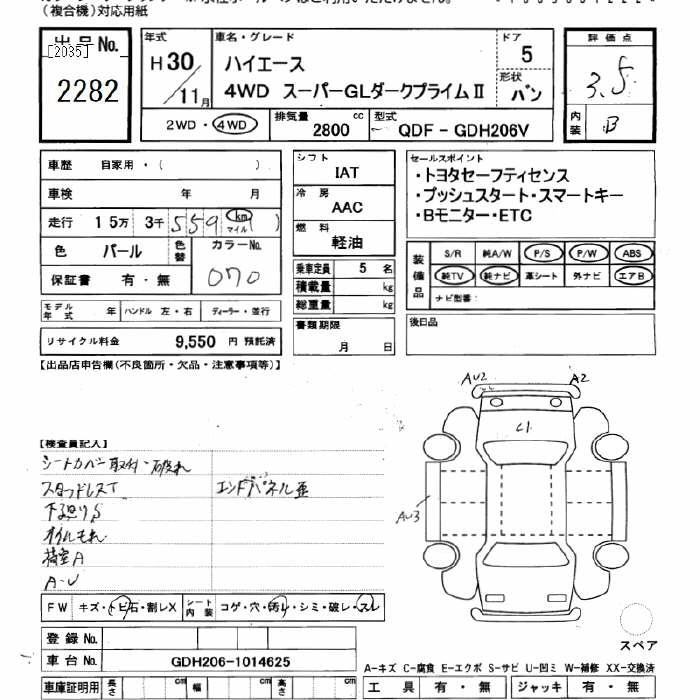 (複合機)対応用紙
出品No.
[2035]
2282
年式
H30/11月
車名・グレード
ハイエース
4WD スーパーGLダークプライムⅡ
ドア
5
形状
バン
評価点
3.5
内装
B
2WD・4WD
排気量
2800 cc
型式
QDF - GDH206V
車歴 自家用・( )
車検 年 月
走行 15万 3千 559 (km マイル)
色 パール
色替
カラーNo.
070
保証書 有・無
モデル年式 年
ハンドル 左・右
ディーラー・並行
リサイクル料金 9,550 円 預託済
シフト
IAT
冷房
AAC
燃料
軽油
乗車定員 5 名
積載量 kg
総重量 kg
書類期限
月 日
セールスポイント
・トヨタセーフティセンス
・プッシュスタート・スマートキー
・Bモニター・ETC
装備品
S/R 純A/W P/S P/W ABS
純TV 純ナビ 革シート 外ナビ エアB
ナビ型番:
後日品
【出品店申告欄(不良箇所・欠品・注意事項等)】
【検査員記入】
シートカバー取付・破れ
スタッドレスT
エンドパネル歪
下廻りS
オイルもれ
荷室A
A-U
AU2
A2
C1
AU3
FW キズ・トビ石・割レX
シート内装 コゲ・穴・汚レ・シミ・破レ・スレ
登録No.
車台No. GDH206-1014625
車庫証明用 長さ cm 幅 cm 高さ cm
スペア
A-キズ C-腐食 E-エクボ S-サビ U-凹ミ W-補修 XX-交換済
工具 有・無 ジャッキ 有・無